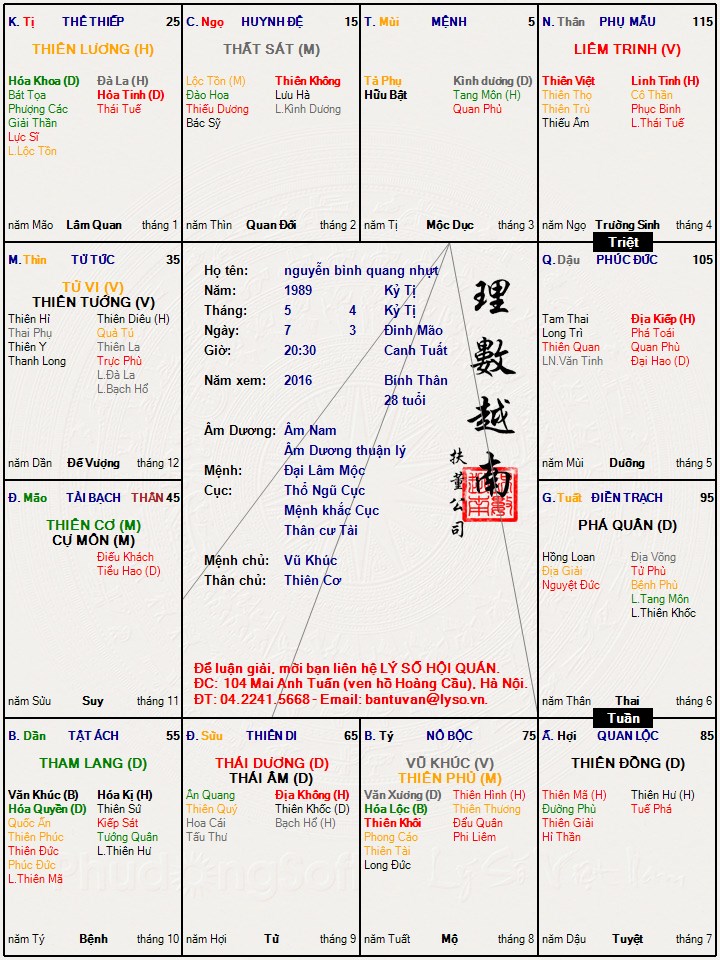 K. Tị THÊ THIẾP 25
THIÊN LƯƠNG (H)
Hóa Khoa (D) Đà La (H)
Bát Tọa Hỏa Tinh (D)
Phượng Các Thái Tuế
Giải Thần
Lực Sĩ
L.Lộc Tồn
năm Mão Lâm Quan tháng 1
C. Ngọ HUYNH ĐỆ 15
THẤT SÁT (M)
Lộc Tồn (M) Thiên Không
Đào Hoa Lưu Hà
Thiếu Dương L.Kình Dương
Bác Sỹ
năm Thìn Quan Đới tháng 2
T. Mùi MỆNH 5
Tả Phụ Kình dương (D)
Hữu Bật Tang Môn (H)
Quan Phủ
năm Tị Mộc Dục tháng 3
N. Thân PHỤ MẪU 115
LIÊM TRINH (V)
Thiên Việt Linh Tinh (H)
Thiên Thọ Cô Thần
Thiên Trù Phục Binh
Thiếu Âm L.Thái Tuế
năm Ngọ Trường Sinh tháng 4
Triệt
M. Thìn TỬ TỨC 35
TỬ VI (V)
THIÊN TƯỚNG (V)
Thiên Hỉ Thiên Diêu (H)
Thai Phụ Quả Tú
Thiên Y Thiên La
Thanh Long Trực Phù
L.Đà La
L.Bạch Hổ
năm Dần Đế Vượng tháng 12
Họ tên: nguyễn bình quang nhựt
Năm: 1989 Kỷ Tị
Tháng: 5 4 Kỷ Tị
Ngày: 7 3 Đinh Mão
Giờ: 20:30 Canh Tuất
Năm xem: 2016 Bính Thân
28 tuổi
Âm Dương: Âm Nam
Âm Dương thuận lý
Mệnh: Đại Lâm Mộc
Cục: Thổ Ngũ Cục
Mệnh khắc Cục
Thân cư Tài
Mệnh chủ: Vũ Khúc
Thân chủ: Thiên Cơ
理數越南
扶董公司
Để luận giải, mời bạn liên hệ LÝ SỐ HỘI QUÁN.
ĐC: 104 Mai Anh Tuấn (ven hồ Hoàng Cầu), Hà Nội.
ĐT: 04.2241.5668 - Email: bantuvan@lyso.vn.
Q. Dậu PHÚC ĐỨC 105
Tam Thai Địa Kiếp (H)
Long Trì Phá Toái
Thiên Quan Quan Phù
LN.Văn Tinh Đại Hao (D)
năm Mùi Dưỡng tháng 5
Đ. Mão TÀI BẠCH THÂN 45
THIÊN CƠ (M)
CỰ MÔN (M)
Điếu Khách
Tiểu Hao (D)
năm Sửu Suy tháng 11
G. Tuất ĐIỀN TRẠCH 95
PHÁ QUÂN (D)
Hồng Loan Địa Võng
Địa Giải Tử Phù
Nguyệt Đức Bệnh Phù
L.Tang Môn
L.Thiên Khốc
năm Thân Thai tháng 6
Tuần
B. Dần TẬT ÁCH 55
THAM LANG (D)
Văn Khúc (B) Hóa Kị (H)
Hóa Quyền (D) Thiên Sứ
Quốc Ấn Kiếp Sát
Thiên Phúc Tướng Quân
Thiên Đức L.Thiên Hư
Phúc Đức
L.Thiên Mã
năm Tý Bệnh tháng 10
Đ. Sửu THIÊN DI 65
THÁI DƯƠNG (D)
THÁI ÂM (D)
Ân Quang Địa Không (H)
Thiên Quý Thiên Khốc (D)
Hoa Cái Bạch Hổ (H)
Tấu Thư
năm Hợi Tử tháng 9
B. Tý NÔ BỘC 75
VŨ KHÚC (V)
THIÊN PHỦ (M)
Văn Xương (D) Thiên Hình (H)
Hóa Lộc (B) Thiên Thương
Thiên Khôi Đẩu Quân
Phong Cáo Phi Liêm
Thiên Tài
Long Đức
năm Tuất Mộ tháng 8
Ấ. Hợi QUAN LỘC 85
THIÊN ĐỒNG (D)
Thiên Mã (H) Thiên Hư (H)
Đường Phù Tuế Phá
Thiên Giải
Hỉ Thần
năm Dậu Tuyệt tháng 7